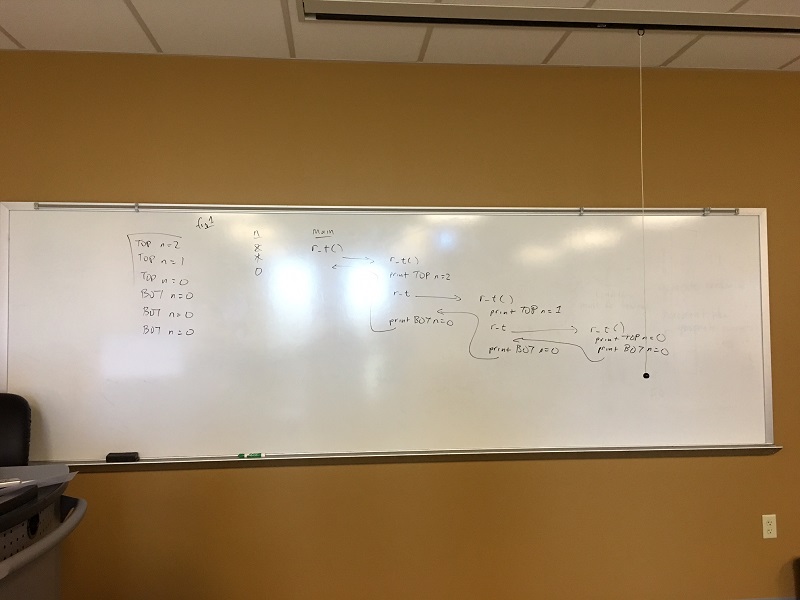 fig 1
TOP n=2
TOP n=1
TOP n=0
BOT n=0
BOT n=0
BOT n=0
n
0
main
r_t()
r_t()
print TOP n=2
r_t
print BOT n=0
r_t()
print TOP n=1
r_t
print BOT n=0
r_t()
print TOP n=0
print BOT n=0